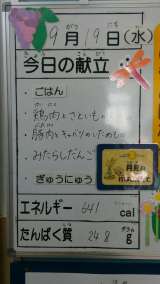 9月19日(水)
今日の献立
・ごはん
・鶏肉とさといもの
・豚肉とキャベツのためもの
・みたらしだんご
ぎゅうにゅう
エネルギー 641 cal
たんぱく質 24.8 g